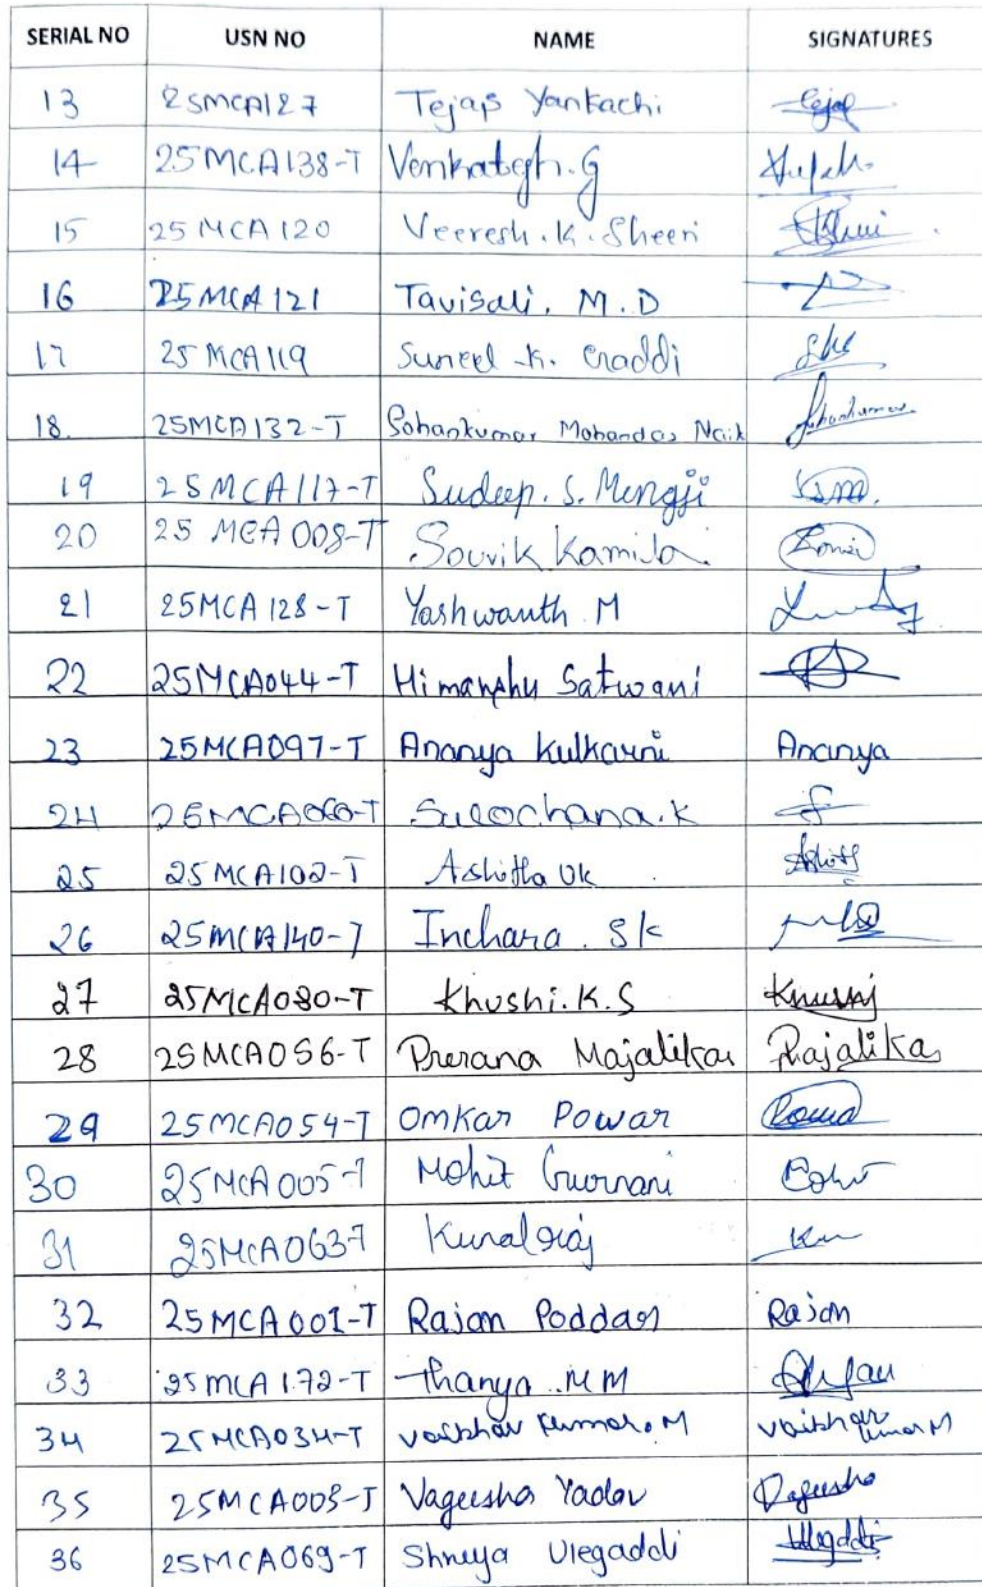 SERIAL NO USN NO NAME SIGNATURES
13 25MCA127 Tejas Yankachi Tejas
14 25MCA138-T Venkatesh.G
15 25MCA120 Veeresh.K.Sheeri
16 25MCA121 Tavisali. M.D
17 25MCA119 Suneel K. Craddi
18. 25MCA132-T Sohankumar Mohandas Naik Sohankumar
19 25MCA117-T Sudeep. S. Mengji
20 25 MCA 008-T Souvik Kamila
21 25MCA128-T Yashwanth M
22 25MCA044-T Himanshu Satwani
23 25MCA097-T Ananya Kulkarni Ananya
24 25MCA060-T Sulochana.K
25 25MCA102-T Ashitha Uk
26 25MCA140-T Inchara. Sk
27 25MCA080-T Khushi.K.S
28 25MCA056-T Prerana Majalikar
29 25MCA054-T Omkar Powar
30 25MCA005-T Mohit Gurnani
31 25MCA063-T Kunal raj
32 25MCA001-T Rajan Poddar Rajan
33 25MCA172-T Thanya .M M
34 25MCA034-T Vaibhav Kumar.M Vaibhav Kumar M
35 25MCA003-T Vageesha Yadav Vageesha
36 25MCA069-T Shreya Ulegaddi Ulegaddi